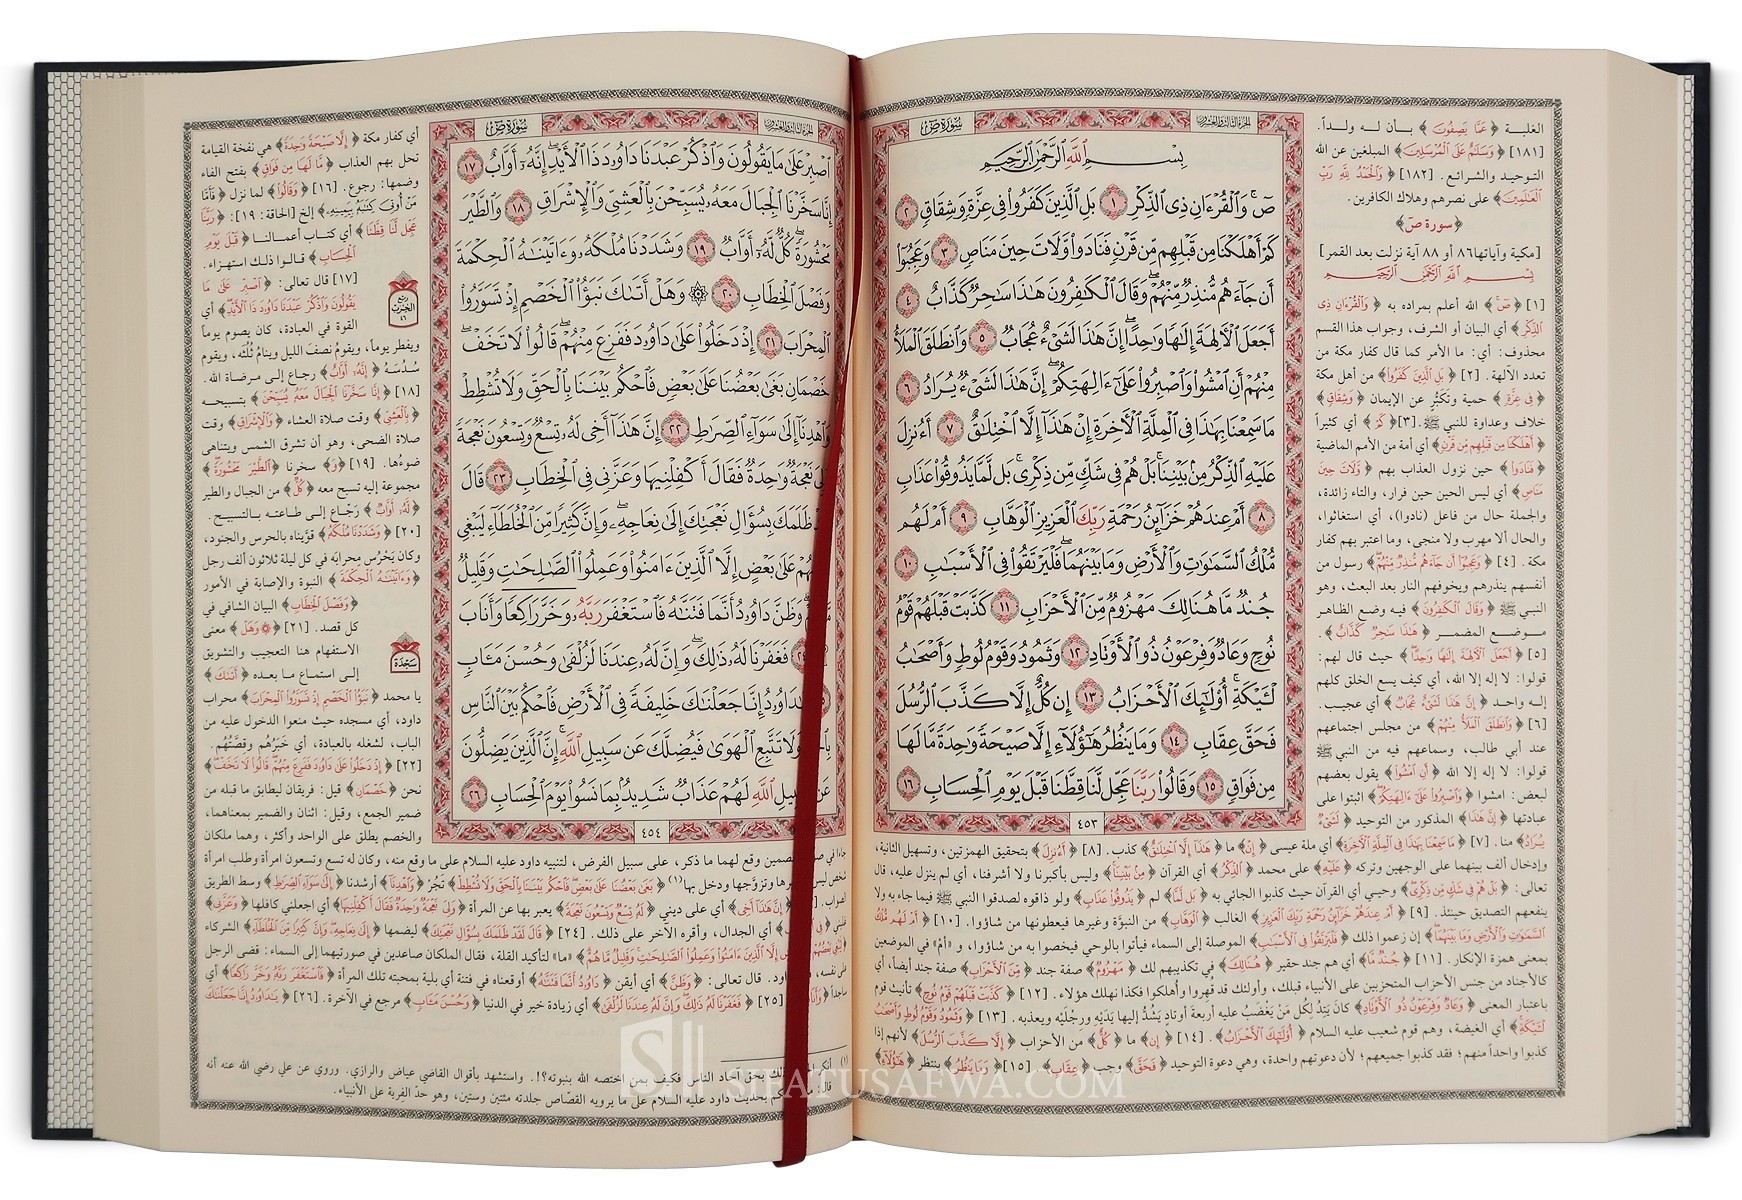 سورة ص
الجزء الثالث والعشرون
بِسْمِ ٱللَّهِ ٱلرَّحْمَٰنِ ٱلرَّحِيمِ
صٓ ۚ وَٱلْقُرْءَانِ ذِى ٱلذِّكْرِ ١ بَلِ ٱلَّذِينَ كَفَرُوا۟ فِى عِزَّةٍ وَشِقَاقٍ ٢
كَمْ أَهْلَكْنَا مِن قَبْلِهِم مِّن قَرْنٍ فَنَادَوا۟ وَّلَاتَ حِينَ مَنَاصٍ ٣ وَعَجِبُوٓا۟
أَن جَآءَهُم مُّنذِرٌ مِّنْهُمْ ۖ وَقَالَ ٱلْكَٰفِرُونَ هَٰذَا سَٰحِرٌ كَذَّابٌ ٤
أَجَعَلَ ٱلْءَالِهَةَ إِلَٰهًا وَٰحِدًا ۖ إِنَّ هَٰذَا لَشَىْءٌ عُجَابٌ ٥ وَٱنطَلَقَ ٱلْمَلَأُ
مِنْهُمْ أَنِ ٱمْشُوا۟ وَٱصْبِرُوا۟ عَلَىٰٓ ءَالِهَتِكُمْ ۖ إِنَّ هَٰذَا لَشَىْءٌ يُرَادُ ٦
مَا سَمِعْنَا بِهَٰذَا فِى ٱلْمِلَّةِ ٱلْءَاخِرَةِ إِنْ هَٰذَآ إِلَّا ٱخْتِلَٰقٌ ٧ أَءُنزِلَ
عَلَيْهِ ٱلذِّكْرُ مِنۢ بَيْنِنَا ۚ بَلْ هُمْ فِى شَكٍّ مِّن ذِكْرِى ۖ بَل لَّمَّا يَذُوقُوا۟ عَذَابِ
٨ أَمْ عِندَهُمْ خَزَآئِنُ رَحْمَةِ رَبِّكَ ٱلْعَزِيزِ ٱلْوَهَّابِ ٩ أَمْ لَهُم
مُّلْكُ ٱلسَّمَٰوَٰتِ وَٱلْأَرْضِ وَمَا بَيْنَهُمَا ۖ فَلْيَرْتَقُوا۟ فِى ٱلْأَسْبَٰبِ ١٠
جُندٌ مَّا هُنَالِكَ مَهْزُومٌ مِّنَ ٱلْأَحْزَابِ ١١ كَذَّبَتْ قَبْلَهُمْ قَوْمُ
نُوحٍ وَعَادٌ وَفِرْعَوْنُ ذُو ٱلْأَوْتَادِ ١٢ وَثَمُودُ وَقَوْمُ لُوطٍ وَأَصْحَٰبُ
لْـَٔيْكَةِ ۚ أُو۟لَٰٓئِكَ ٱلْأَحْزَابُ ١٣ إِن كُلٌّ إِلَّا كَذَّبَ ٱلرُّسُلَ
فَحَقَّ عِقَابِ ١٤ وَمَا يَنظُرُ هَٰٓؤُلَآءِ إِلَّا صَيْحَةً وَٰحِدَةً مَّا لَهَا
مِن فَوَاقٍ ١٥ وَقَالُوا۟ رَبَّنَا عَجِّل لَّنَا قِطَّنَا قَبْلَ يَوْمِ ٱلْحِسَابِ ١٦
٤٥٣
الغلبة ﴿عَمَّا يَصِفُونَ﴾ بأن له ولداً.
[١٨١] ﴿وَسَلَٰمٌ عَلَى ٱلْمُرْسَلِينَ﴾ المبلغين عن الله
التوحيد والشرائع. [١٨٢] ﴿وَٱلْحَمْدُ لِلَّهِ رَبِّ
ٱلْعَٰلَمِينَ﴾ على نصرهم وهلاك الكافرين.
﴿سورة ص﴾
[مكية وآياتها ٨٦ أو ٨٨ آية نزلت بعد القمر]
بِسْمِ ٱللَّهِ ٱلرَّحْمَٰنِ ٱلرَّحِيمِ
[١] ﴿صٓ﴾ الله أعلم بمراده به ﴿وَٱلْقُرْءَانِ ذِى
ٱلذِّكْرِ﴾ أي البيان أو الشرف، وجواب هذا القسم
محذوف: أي: ما الأمر كما قال كفار مكة من
تعدد الآلهة. [٢] ﴿بَلِ ٱلَّذِينَ كَفَرُوا۟﴾ من أهل مكة
﴿فِى عِزَّةٍ﴾ حمية وتكبُّر عن الإيمان ﴿وَشِقَاقٍ﴾
خلاف وعداوة للنبي ﷺ. [٣] ﴿كَمْ﴾ أي كثيراً
﴿أَهْلَكْنَا مِن قَبْلِهِم مِّن قَرْنٍ﴾ أي أمة من الأمم الماضية
﴿فَنَادَوا۟﴾ حين نزول العذاب بهم ﴿وَّلَاتَ حِينَ
مَنَاصٍ﴾ أي ليس الحين حين فرار، والتاء زائدة،
والجملة حال من فاعل (نادوا)، أي استغاثوا،
والحال ألا مهرب ولا منجى، وما اعتبر بهم كفار
مكة. [٤] ﴿وَعَجِبُوٓا۟ أَن جَآءَهُم مُّنذِرٌ مِّنْهُمْ﴾ رسول من
أنفسهم ينذرهم ويخوفهم النار بعد البعث، وهو
النبي ﷺ ﴿وَقَالَ ٱلْكَٰفِرُونَ﴾ فيه وضع الظاهر
موضع المضمر ﴿هَٰذَا سَٰحِرٌ كَذَّابٌ﴾.
[٥] ﴿أَجَعَلَ ٱلْءَالِهَةَ إِلَٰهًا وَٰحِدًا﴾ حيث قال لهم:
قولوا: لا إله إلا الله، أي كيف يسع الخلق كلهم
إله واحد ﴿إِنَّ هَٰذَا لَشَىْءٌ عُجَابٌ﴾ أي عجيب.
[٦] ﴿وَٱنطَلَقَ ٱلْمَلَأُ مِنْهُمْ﴾ من مجلس اجتماعهم
عند أبي طالب، وسماعهم فيه من النبي ﷺ
قولوا: لا إله إلا الله ﴿أَنِ ٱمْشُوا۟﴾ يقول بعضهم
لبعض: امشوا ﴿وَٱصْبِرُوا۟ عَلَىٰٓ ءَالِهَتِكُمْ﴾ اثبتوا على
عبادتها ﴿إِنَّ هَٰذَا﴾ المذكور من التوحيد ﴿لَشَىْءٌ
يُرَادُ﴾ منا. [٧] ﴿مَا سَمِعْنَا بِهَٰذَا فِى ٱلْمِلَّةِ ٱلْءَاخِرَةِ﴾ أي ملة عيسى ﴿إِنْ﴾ ما ﴿هَٰذَآ إِلَّا ٱخْتِلَٰقٌ﴾ كذب. [٨] ﴿أَءُنزِلَ﴾ بتحقيق الهمزتين، وتسهيل الثانية،
وإدخال ألف بينهما على الوجهين وتركه ﴿عَلَيْهِ﴾ على محمد ﴿ٱلذِّكْرُ﴾ أي القرآن ﴿مِنۢ بَيْنِنَا﴾ وليس بأكبرنا ولا أشرفنا، أي لم ينزل عليه، قال
تعالى: ﴿بَلْ هُمْ فِى شَكٍّ مِّن ذِكْرِى﴾ وحيي أي القرآن حيث كذبوا الجائي به ﴿بَل لَّمَّا﴾ لم ﴿يَذُوقُوا۟ عَذَابِ﴾ ولو ذاقوه لصدقوا النبي ﷺ فيما جاء به ولا
ينفعهم التصديق حينئذ. [٩] ﴿أَمْ عِندَهُمْ خَزَآئِنُ رَحْمَةِ رَبِّكَ ٱلْعَزِيزِ﴾ الغالب ﴿ٱلْوَهَّابِ﴾ من النبوّة وغيرها فيعطونها من شاؤوا. [١٠] ﴿أَمْ لَهُم مُّلْكُ
ٱلسَّمَٰوَٰتِ وَٱلْأَرْضِ وَمَا بَيْنَهُمَا﴾ إن زعموا ذلك ﴿فَلْيَرْتَقُوا۟ فِى ٱلْأَسْبَٰبِ﴾ الموصلة إلى السماء فيأتوا بالوحي فيخصوا به من شاؤوا، و «أم» في الموضعين
بمعنى همزة الإنكار. [١١] ﴿جُندٌ مَّا﴾ أي هم جند حقير ﴿هُنَالِكَ﴾ في تكذيبهم لك ﴿مَهْزُومٌ﴾ صفة جند ﴿مِّنَ ٱلْأَحْزَابِ﴾ صفة جند أيضاً، أي
كالأجناد من جنس الأحزاب المتحزبين على الأنبياء قبلك، وأولئك قد قهروا وأهلكوا فكذا نهلك هؤلاء. [١٢] ﴿كَذَّبَتْ قَبْلَهُمْ قَوْمُ نُوحٍ﴾ تأنيث قوم
باعتبار المعنى ﴿وَعَادٌ وَفِرْعَوْنُ ذُو ٱلْأَوْتَادِ﴾ كان يَتِدُ لكل من يغضب عليه أربعة أوتادٍ يَشُدُّ إليها يديه ورجليه ويعذبه. [١٣] ﴿وَثَمُودُ وَقَوْمُ لُوطٍ وَأَصْحَٰبُ
لْـَٔيْكَةِ﴾ أي الغيضة، وهم قوم شعيب عليه السلام ﴿أُو۟لَٰٓئِكَ ٱلْأَحْزَابُ﴾. [١٤] ﴿إِن﴾ ما ﴿كُلٌّ﴾ من الأحزاب ﴿إِلَّا كَذَّبَ ٱلرُّسُلَ﴾ لأنهم إذا
كذبوا واحداً منهم؛ فقد كذبوا جميعهم؛ لأن دعوتهم واحدة، وهي دعوة التوحيد ﴿فَحَقَّ﴾ وجب ﴿عِقَابِ﴾. [١٥] ﴿وَمَا يَنظُرُ﴾ ينتظر ﴿هَٰٓؤُلَآءِ﴾
سورة ص
الجزء الثالث والعشرون
ٱصْبِرْ عَلَىٰ مَا يَقُولُونَ وَٱذْكُرْ عَبْدَنَا دَاوُۥدَ ذَا ٱلْأَيْدِ ۖ إِنَّهُۥٓ أَوَّابٌ ١٧
إِنَّا سَخَّرْنَا ٱلْجِبَالَ مَعَهُۥ يُسَبِّحْنَ بِٱلْعَشِىِّ وَٱلْإِشْرَاقِ ١٨ وَٱلطَّيْرَ
مَحْشُورَةً ۖ كُلٌّ لَّهُۥٓ أَوَّابٌ ١٩ وَشَدَدْنَا مُلْكَهُۥ وَءَاتَيْنَٰهُ ٱلْحِكْمَةَ
وَفَصْلَ ٱلْخِطَابِ ٢٠ ۞ وَهَلْ أَتَىٰكَ نَبَؤُا۟ ٱلْخَصْمِ إِذْ تَسَوَّرُوا۟
ٱلْمِحْرَابَ ٢١ إِذْ دَخَلُوا۟ عَلَىٰ دَاوُۥدَ فَفَزِعَ مِنْهُمْ ۖ قَالُوا۟ لَا تَخَفْ ۖ
خَصْمَانِ بَغَىٰ بَعْضُنَا عَلَىٰ بَعْضٍ فَٱحْكُم بَيْنَنَا بِٱلْحَقِّ وَلَا تُشْطِطْ
وَٱهْدِنَآ إِلَىٰ سَوَآءِ ٱلصِّرَٰطِ ٢٢ إِنَّ هَٰذَآ أَخِى لَهُۥ تِسْعٌ وَتِسْعُونَ نَعْجَةً
نَعْجَةٌ وَٰحِدَةٌ فَقَالَ أَكْفِلْنِيهَا وَعَزَّنِى فِى ٱلْخِطَابِ ٢٣ قَالَ
ظَلَمَكَ بِسُؤَالِ نَعْجَتِكَ إِلَىٰ نِعَاجِهِۦ ۖ وَإِنَّ كَثِيرًا مِّنَ ٱلْخُلَطَآءِ لَيَبْغِى
عَلَىٰ بَعْضٍ إِلَّا ٱلَّذِينَ ءَامَنُوا۟ وَعَمِلُوا۟ ٱلصَّٰلِحَٰتِ وَقَلِيلٌ
وَظَنَّ دَاوُۥدُ أَنَّمَا فَتَنَّٰهُ فَٱسْتَغْفَرَ رَبَّهُۥ وَخَرَّ رَاكِعًا وَأَنَابَ
٢٤ فَغَفَرْنَا لَهُۥ ذَٰلِكَ ۖ وَإِنَّ لَهُۥ عِندَنَا لَزُلْفَىٰ وَحُسْنَ مَـَٔابٍ
يَٰدَاوُۥدُ إِنَّا جَعَلْنَٰكَ خَلِيفَةً فِى ٱلْأَرْضِ فَٱحْكُم بَيْنَ ٱلنَّاسِ
وَلَا تَتَّبِعِ ٱلْهَوَىٰ فَيُضِلَّكَ عَن سَبِيلِ ٱللَّهِ ۚ إِنَّ ٱلَّذِينَ يَضِلُّونَ
عَن سَبِيلِ ٱللَّهِ لَهُمْ عَذَابٌ شَدِيدٌۢ بِمَا نَسُوا۟ يَوْمَ ٱلْحِسَابِ ٢٦
٤٥٤
أي كفار مكة ﴿إِلَّا صَيْحَةً وَٰحِدَةً﴾ هي نفخة القيامة
تحل بهم العذاب ﴿مَّا لَهَا مِن فَوَاقٍ﴾ بفتح الفاء
وضمها: رجوع. [١٦] ﴿وَقَالُوا۟﴾ لما نزل ﴿فَأَمَّا
مَنْ أُوتِىَ كِتَٰبَهُۥ بِيَمِينِهِۦ﴾ إلخ [الحاقة: ١٩]: ﴿رَبَّنَا
عَجِّل لَّنَا قِطَّنَا﴾ أي كتاب أعمالنا ﴿قَبْلَ يَوْمِ
ٱلْحِسَابِ﴾ قالوا ذلك استهزاء.
[١٧] قال تعالى: ﴿ٱصْبِرْ عَلَىٰ مَا
يَقُولُونَ وَٱذْكُرْ عَبْدَنَا دَاوُۥدَ ذَا ٱلْأَيْدِ﴾ أي
القوة في العبادة، كان يصوم يوماً
ويفطر يوما، ويقومُ نصفَ الليل وينامُ ثُلُثَه، ويقوم
سُدُسَهُ ﴿إِنَّهُۥٓ أَوَّابٌ﴾ رجاع إلى مرضاة الله.
[١٨] ﴿إِنَّا سَخَّرْنَا ٱلْجِبَالَ مَعَهُۥ يُسَبِّحْنَ﴾ بتسبيحه
﴿بِٱلْعَشِىِّ﴾ وقت صلاة العشاء ﴿وَٱلْإِشْرَاقِ﴾ وقت
صلاة الضحى، وهو أن تشرق الشمس ويتناهى
ضوءُها. [١٩] ﴿وَ﴾ سخرنا ﴿ٱلطَّيْرَ مَحْشُورَةً﴾
مجموعة إليه تسبح معه ﴿كُلٌّ﴾ من الجبال والطير
﴿لَّهُۥٓ أَوَّابٌ﴾ رجّاع إلى طاعته بالتسبيح.
[٢٠] ﴿وَشَدَدْنَا مُلْكَهُۥ﴾ قوّيناه بالحرس والجنود،
وكان يَحْرُس محرابَه في كل ليلة ثلاثون ألف رجل
﴿وَءَاتَيْنَٰهُ ٱلْحِكْمَةَ﴾ النبوة والإصابة في الأمور
﴿وَفَصْلَ ٱلْخِطَابِ﴾ البيان الشافي في
كل قصد. [٢١] ﴿۞ وَهَلْ﴾ معنى
الاستفهام هنا التعجيب والتشويق
إلى استماع ما بعده ﴿أَتَىٰكَ﴾
يا محمد ﴿نَبَؤُا۟ ٱلْخَصْمِ إِذْ تَسَوَّرُوا۟ ٱلْمِحْرَابَ﴾ محراب
داود، أي مسجده حيث منعوا الدخول عليه من
الباب، لشغله بالعبادة، أي خَبَرُهم وقصَّتُهم.
[٢٢] ﴿إِذْ دَخَلُوا۟ عَلَىٰ دَاوُۥدَ فَفَزِعَ مِنْهُمْ ۖ قَالُوا۟ لَا تَخَفْ﴾
نحن ﴿خَصْمَانِ﴾ قيل: فريقان ليطابق ما قبله من
ضمير الجمع، وقيل: اثنان والضمير بمعناهما،
والخصم يطلق على الواحد وأكثر، وهما ملكان
جاءا في خصمين وقع لهما ما ذكر، على سبيل الفرض، لتنبيه داود عليه السلام على ما وقع منه، وكان له تسع وتسعون امرأة وطلب امرأة
شخص ليس وتزوّجها ودخل بها(١) ﴿بَغَىٰ بَعْضُنَا عَلَىٰ بَعْضٍ فَٱحْكُم بَيْنَنَا بِٱلْحَقِّ وَلَا تُشْطِطْ﴾ تَجُرْ ﴿وَٱهْدِنَآ﴾ أرشدنا ﴿إِلَىٰ سَوَآءِ ٱلصِّرَٰطِ﴾ وسط الطريق
الصواب. ﴿إِنَّ هَٰذَآ أَخِى﴾ أي على ديني ﴿لَهُۥ تِسْعٌ وَتِسْعُونَ نَعْجَةً﴾ يعبر بها عن المرأة ﴿وَلِىَ نَعْجَةٌ وَٰحِدَةٌ فَقَالَ أَكْفِلْنِيهَا﴾ أي اجعلني كافلها ﴿وَعَزَّنِى﴾
غلبني ﴿فِى أي الجدال، وأقره الآخر على ذلك. [٢٤] ﴿قَالَ لَقَدْ ظَلَمَكَ بِسُؤَالِ نَعْجَتِكَ﴾ ليضمها ﴿إِلَىٰ نِعَاجِهِۦ ۖ وَإِنَّ كَثِيرًا مِّنَ ٱلْخُلَطَآءِ﴾ الشركاء
﴿لَيَبْغِى بَعْضُهُمْ إِلَّا ٱلَّذِينَ ءَامَنُوا۟ وَعَمِلُوا۟ ٱلصَّٰلِحَٰتِ وَقَلِيلٌ مَّا هُمْ﴾ «ما» لتأكيد القلة، فقال الملكان صاعدين في صورتيهما إلى السماء: قضى الرجل
على نفسه، داود. قال تعالى: ﴿وَظَنَّ﴾ أي أيقن ﴿دَاوُۥدُ أَنَّمَا فَتَنَّٰهُ﴾ أوقعناه في فتنة أي بلية بمحبته تلك المرأة ﴿فَٱسْتَغْفَرَ رَبَّهُۥ وَخَرَّ رَاكِعًا﴾ أي
ساجداً ﴿وَأَنَابَ [٢٥] ﴿فَغَفَرْنَا لَهُۥ ذَٰلِكَ ۖ وَإِنَّ لَهُۥ عِندَنَا لَزُلْفَىٰ﴾ أي زيادة خير في الدنيا ﴿وَحُسْنَ مَـَٔابٍ﴾ مرجع في الآخرة. [٢٦] ﴿يَٰدَاوُۥدُ إِنَّا جَعَلْنَٰكَ
(١) بحق آحاد الناس فكيف بمن اختصه الله بنبوته؟!. واستشهد بأقوال القاضي عياض والرازي. وروي عن علي رضي الله عنه أنه
قال: بحديث داود عليه السلام على ما يرويه القصّاص جلدته مئتين وستين، وهو حدّ الفرية على الأنبياء.
ربع
الحزب
٤٦
سجدة
SIFATUSAFWA.COM